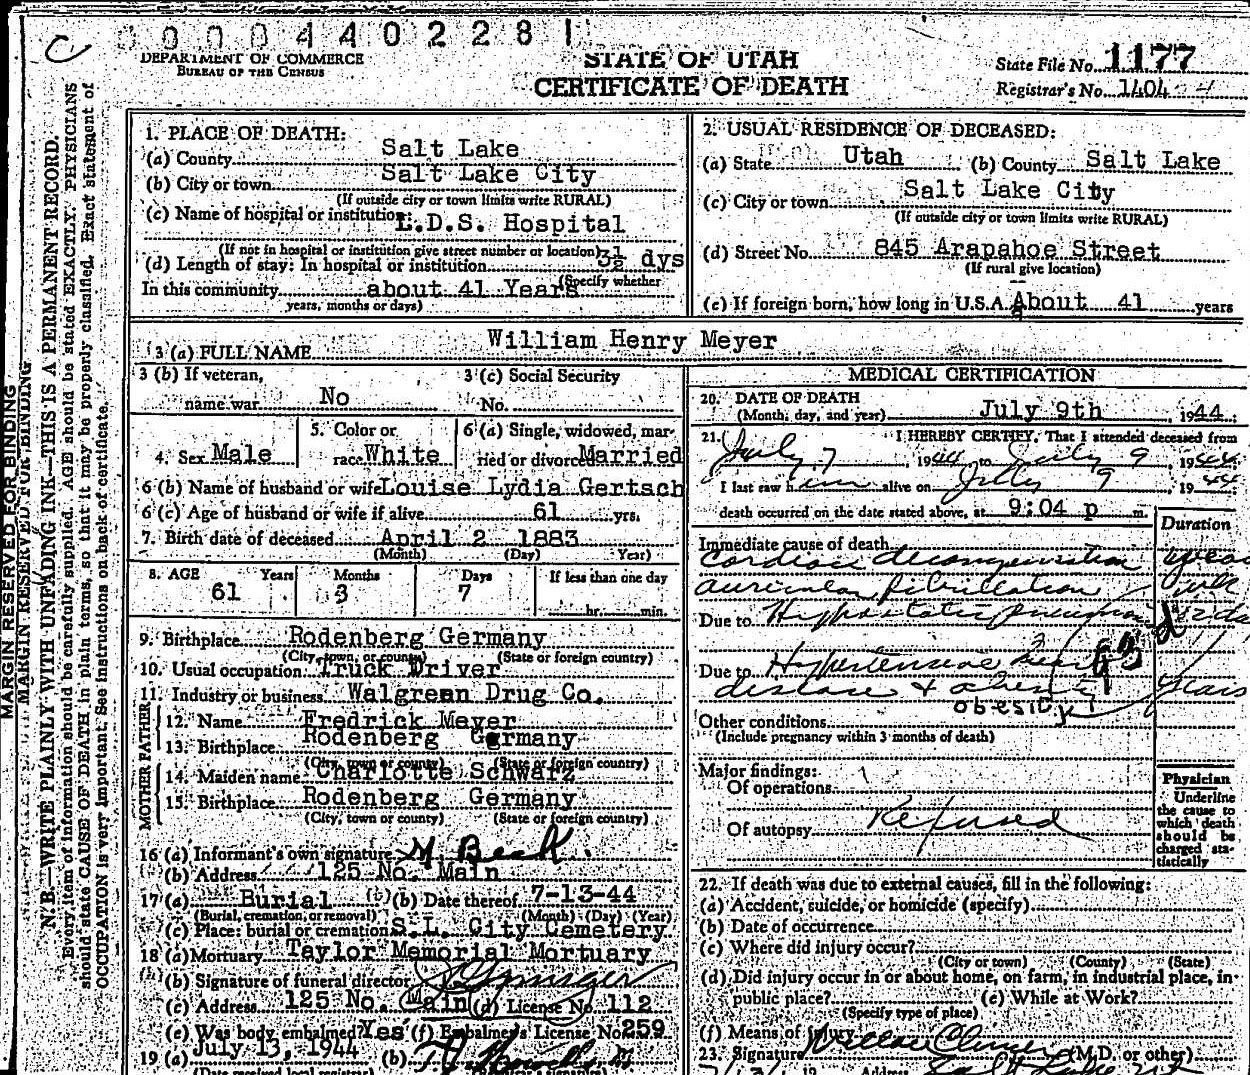 C
0 0 0 4 4 0 2 2 8 1
DEPARTMENT OF COMMERCE
BUREAU OF THE CENSUS
STATE OF UTAH
CERTIFICATE OF DEATH
State File No. 1177
Registrar's No. 1404
MARGIN RESERVED FOR BINDING
MARGIN RESERVED FOR BINDING
N. B.—WRITE PLAINLY WITH UNFADING INK—THIS IS A PERMANENT RECORD.
Every item of information should be carefully supplied. AGE should be stated EXACTLY. PHYSICIANS
should state CAUSE OF DEATH in plain terms, so that it may be properly classified. Exact statement of
OCCUPATION is very important. See instructions on back of certificate.
1. PLACE OF DEATH:
(a) County Salt Lake
(b) City or town Salt Lake City
(If outside city or town limits write RURAL)
(c) Name of hospital or institution: L.D.S. Hospital
(If not in hospital or institution give street number or location)
(d) Length of stay: In hospital or institution 3½ dys
(Specify whether
In this community about 41 Years
years, months or days)
2. USUAL RESIDENCE OF DECEASED:
(a) State Utah (b) County Salt Lake
(c) City or town Salt Lake City
(If outside city or town limits write RURAL)
(d) Street No. 845 Arapahoe Street
(If rural give location)
(e) If foreign born, how long in U.S.A. About 41 years
3 (a) FULL NAME William Henry Meyer
3 (b) If veteran,
name war No
3 (c) Social Security
No.
4. Sex Male
5. Color or
race White
6 (a) Single, widowed, mar-
ried or divorced Married
6 (b) Name of husband or wife Louise Lydia Gertsch
6 (c) Age of husband or wife if alive 61 yrs.
7. Birth date of deceased April 2 1883
(Month) (Day) Year)
8. AGE Years Months Days If less than one day
61 3 7 hr. min.
9. Birthplace Rodenberg Germany
(City, town, or county) (State or foreign country)
10. Usual occupation Truck Driver
11. Industry or business Walgrean Drug Co.
FATHER
12. Name Fredrick Meyer
13. Birthplace Rodenberg Germany
(City, town or county) (State or foreign country)
MOTHER
14. Maiden name Charlotte Schwarz
15. Birthplace Rodenberg Germany
(City, town or county) (State or foreign country)
16 (a) Informant's own signature M. Beck.
(b) Address 125 No. Main
17 (a) Burial (b) Date thereof 7-13-44
(Burial, cremation, or removal) (Month) (Day) (Year)
(c) Place: burial or cremation S.L. City Cemetery
18 (a) Mortuary Taylor Memorial Mortuary
(b) Signature of funeral director
(c) Address 125 No. Main (d) License No. 112
(e) Was body embalmed? Yes (f) Embalmer's License No. 259
19 (a) July 13, 1944 (b)
(Date received local registrar)
MEDICAL CERTIFICATION
20. DATE OF DEATH
(Month, day, and year) July 9th, 1944
21. I HEREBY CERTIFY, That I attended deceased from
July 7, 1944 to July 9, 1944
I last saw him alive on July 9, 1944
death occurred on the date stated above, at 9:04 p m.
Duration
Immediate cause of death
Cardiac decompensation years
auricular fibrillation
Due to Hypostatic pneumonia
Due to Hypertensive heart
disease & obesity years
obesity
Other conditions
(Include pregnancy within 3 months of death)
Major findings:
Of operations
Of autopsy Refused
Physician
Underline
the cause to
which death
should be
charged sta-
tistically
22. If death was due to external causes, fill in the following:
(a) Accident, suicide, or homicide (specify)
(b) Date of occurrence
(c) Where did injury occur?
(City or town) (County) (State)
(d) Did injury occur in or about home, on farm, in industrial place, in
public place? (e) While at Work?
(Specify type of place)
(f) Means of injury
23. Signature (M.D. or other)
Address